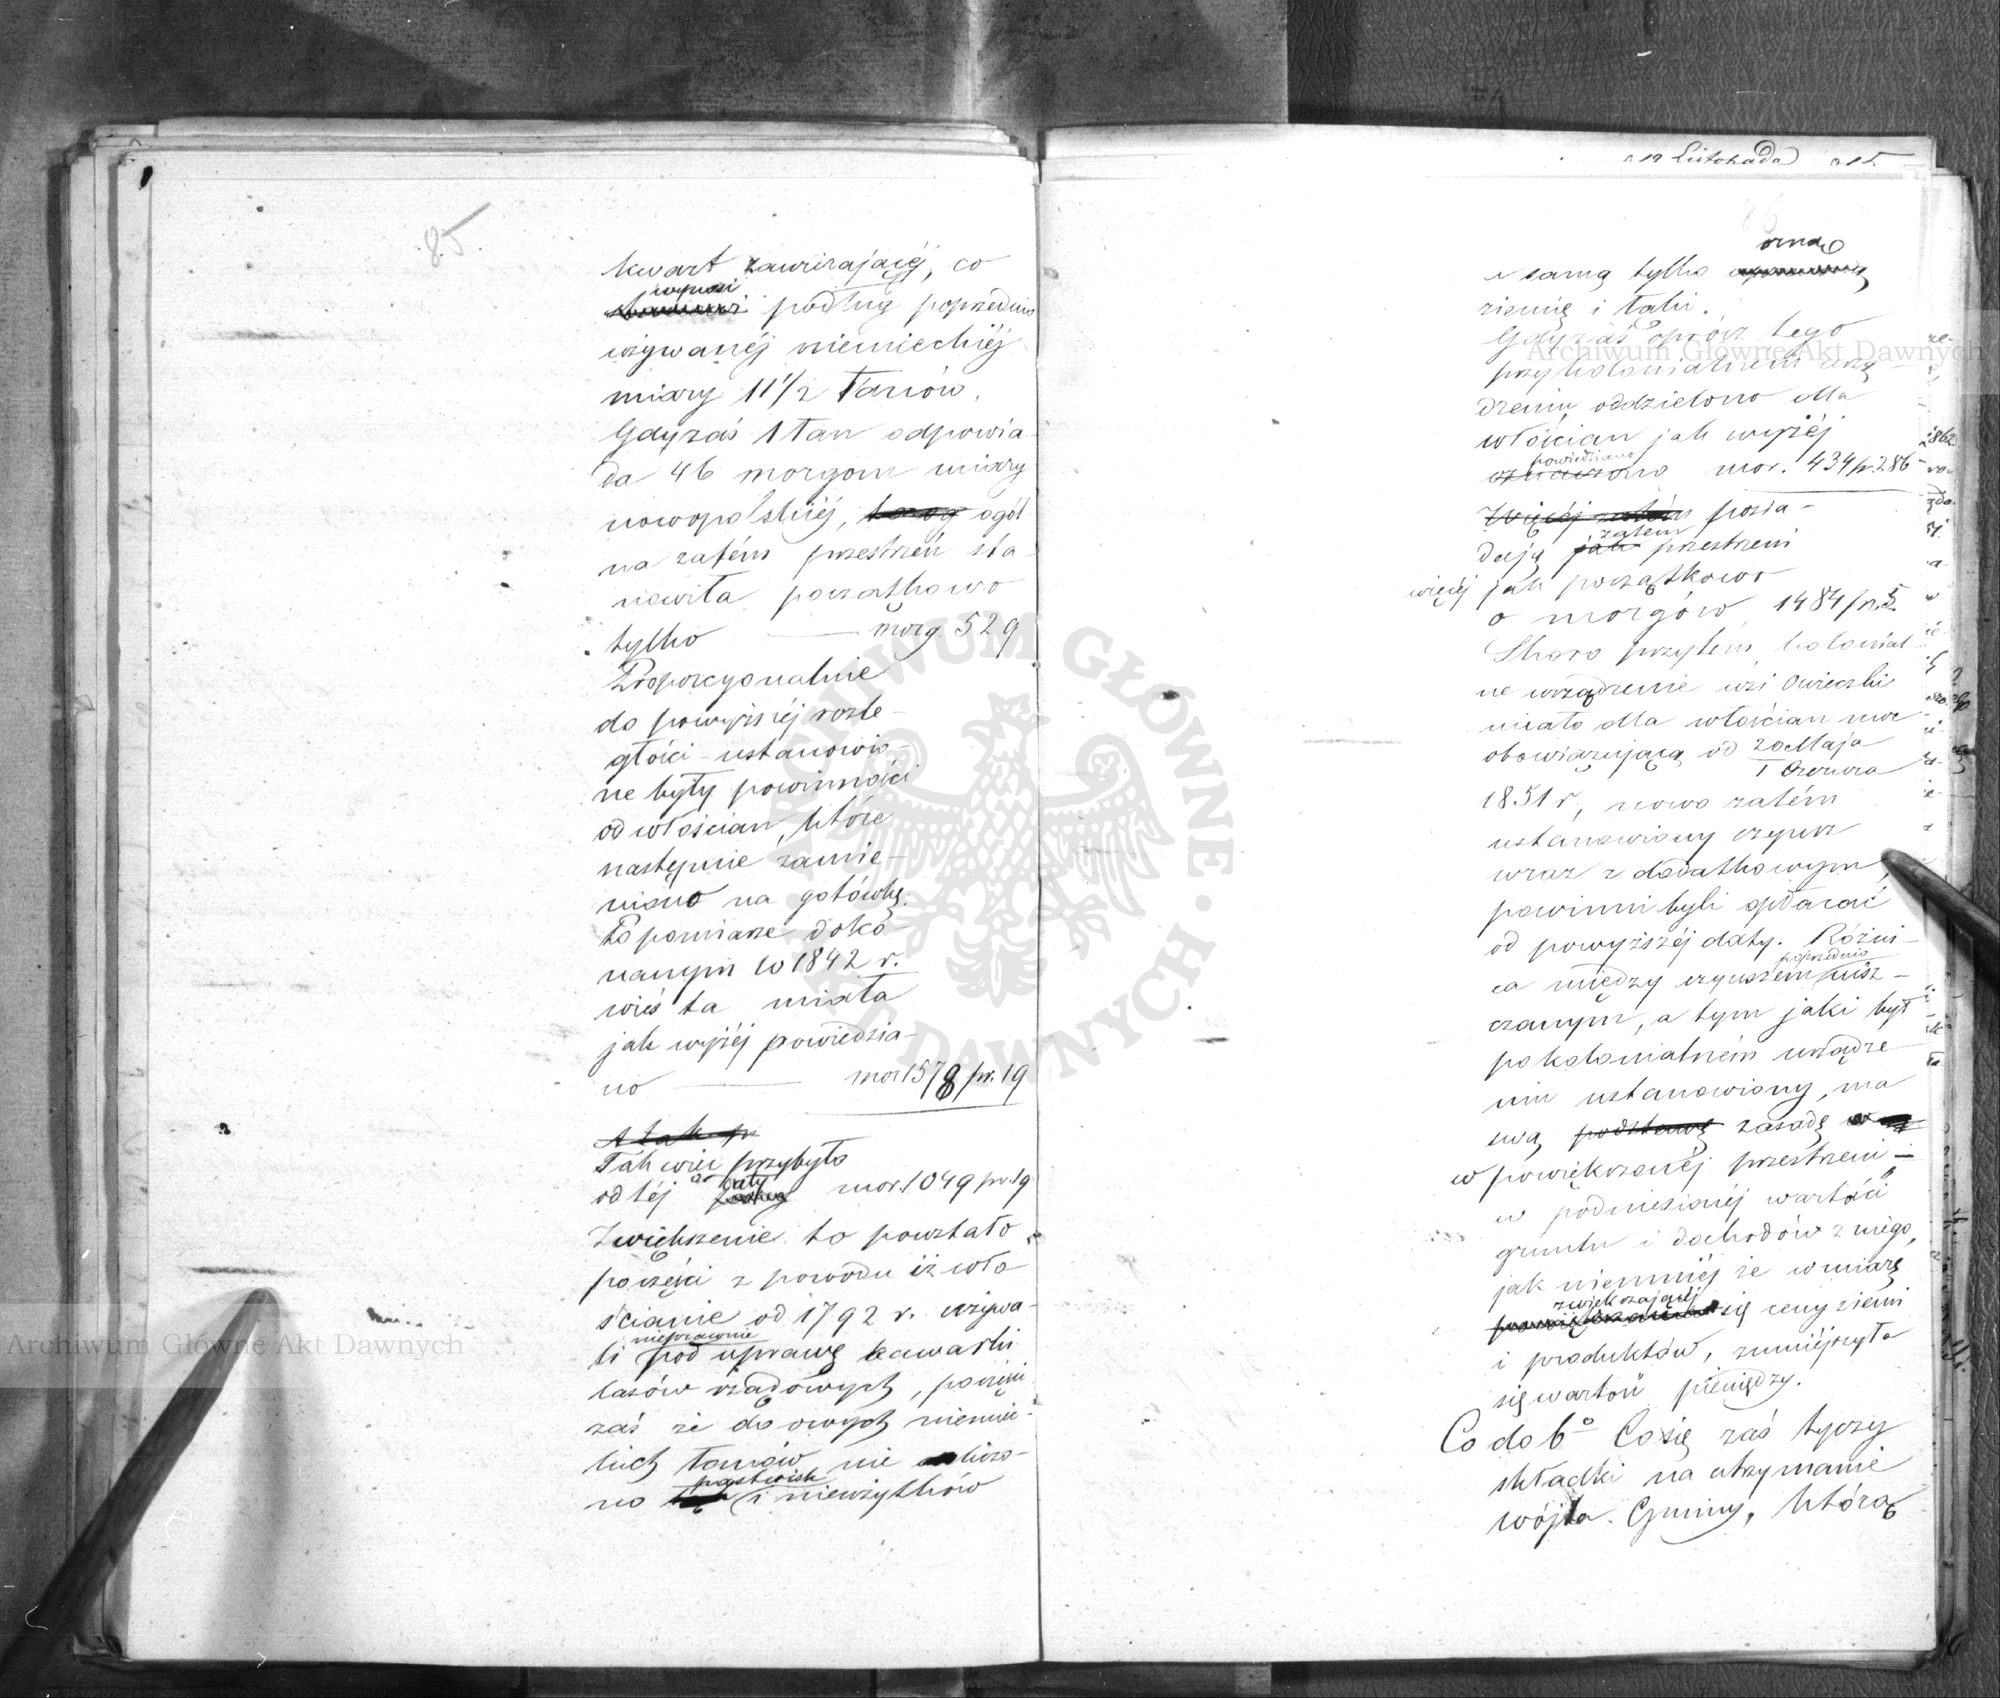 85
kwart zawierającej, co
wynosi
podług poprzednio
używanéj niemieckiéj
miary 11 1/2 Łanów.
Gdyzaś 1 łan odpowia-
da 46 morgom miary
nowopolskiéj, ogól
na zatém przestrzeń sta-
nowiła początkowo
tylko — morg. 529
Proporcyonalnie
do powyższéj rozle-
głości ustanowio-
ne były powinności
od włościan, które
następnie zamie-
niono na gotówkę.
Po pomiarze doko-
nanym w 1842 r.
wieś ta miała
jak wyżéj powiedzia-
no — mor 1578 pr. 19
A tak pr
Tak więc przybyło
od téj daty mor. 1049 pr. 19
Zwiększenie to powstało
poczęści z powodu iż wło-
ścianie od 1792 r. używa-
nieprawnie
li pod uprawę kawałki
lasów rządowych, poczęści
zaś że do owych niemiec-
kich łanów nie liczo-
pastwisk
no i nieużytków
19 Listopada
86
orną
a samą tylko
ziemię i łąki.
Gdy zaś oprócz tego
przy kolonialném urzą
dzeniu oddzielono dla
włościan jak wyżéj
powiedziano
oznaczono mor. 434 pr. 286
Więcéj zatém posia-
zatem
dają jak przestrzeni
więcéj jak początkowo
o morgów 1484 pr. 5.
Skoro przytém kolonial-
ne urządzenie wsi Owieczki
miało dla włościan moc
obowiązującą od 20 Maja
1 Czerwca
1851 r, nowo zatém
ustanowiony czynsz
wraz z dodatkowym,
powinni byli opłacać
od powyższéj daty. Różni-
poprzednio
ca między czynszem uisz-
czanym, a tym jaki był
po kolonialném urządze
niu ustanowiony, ma
swą podstawę zasadę w
w powiększonéj przestrzeni —
w podniesionéj wartości
gruntu i dochodów z niego,
jak niemniéj że w miarę
zwiększającéj
się ceny ziemi
i produktów, zmniéjszyła
się wartość pieniędzy.
Co do 6º Co się zaś tyczy
składki na utrzymanie
wójta Gminy, którą
Archiwum Główne Akt Dawnych
Archiwum Główne Akt Dawnych
ARCHIWUM GŁÓWNE AKT DAWNYCH